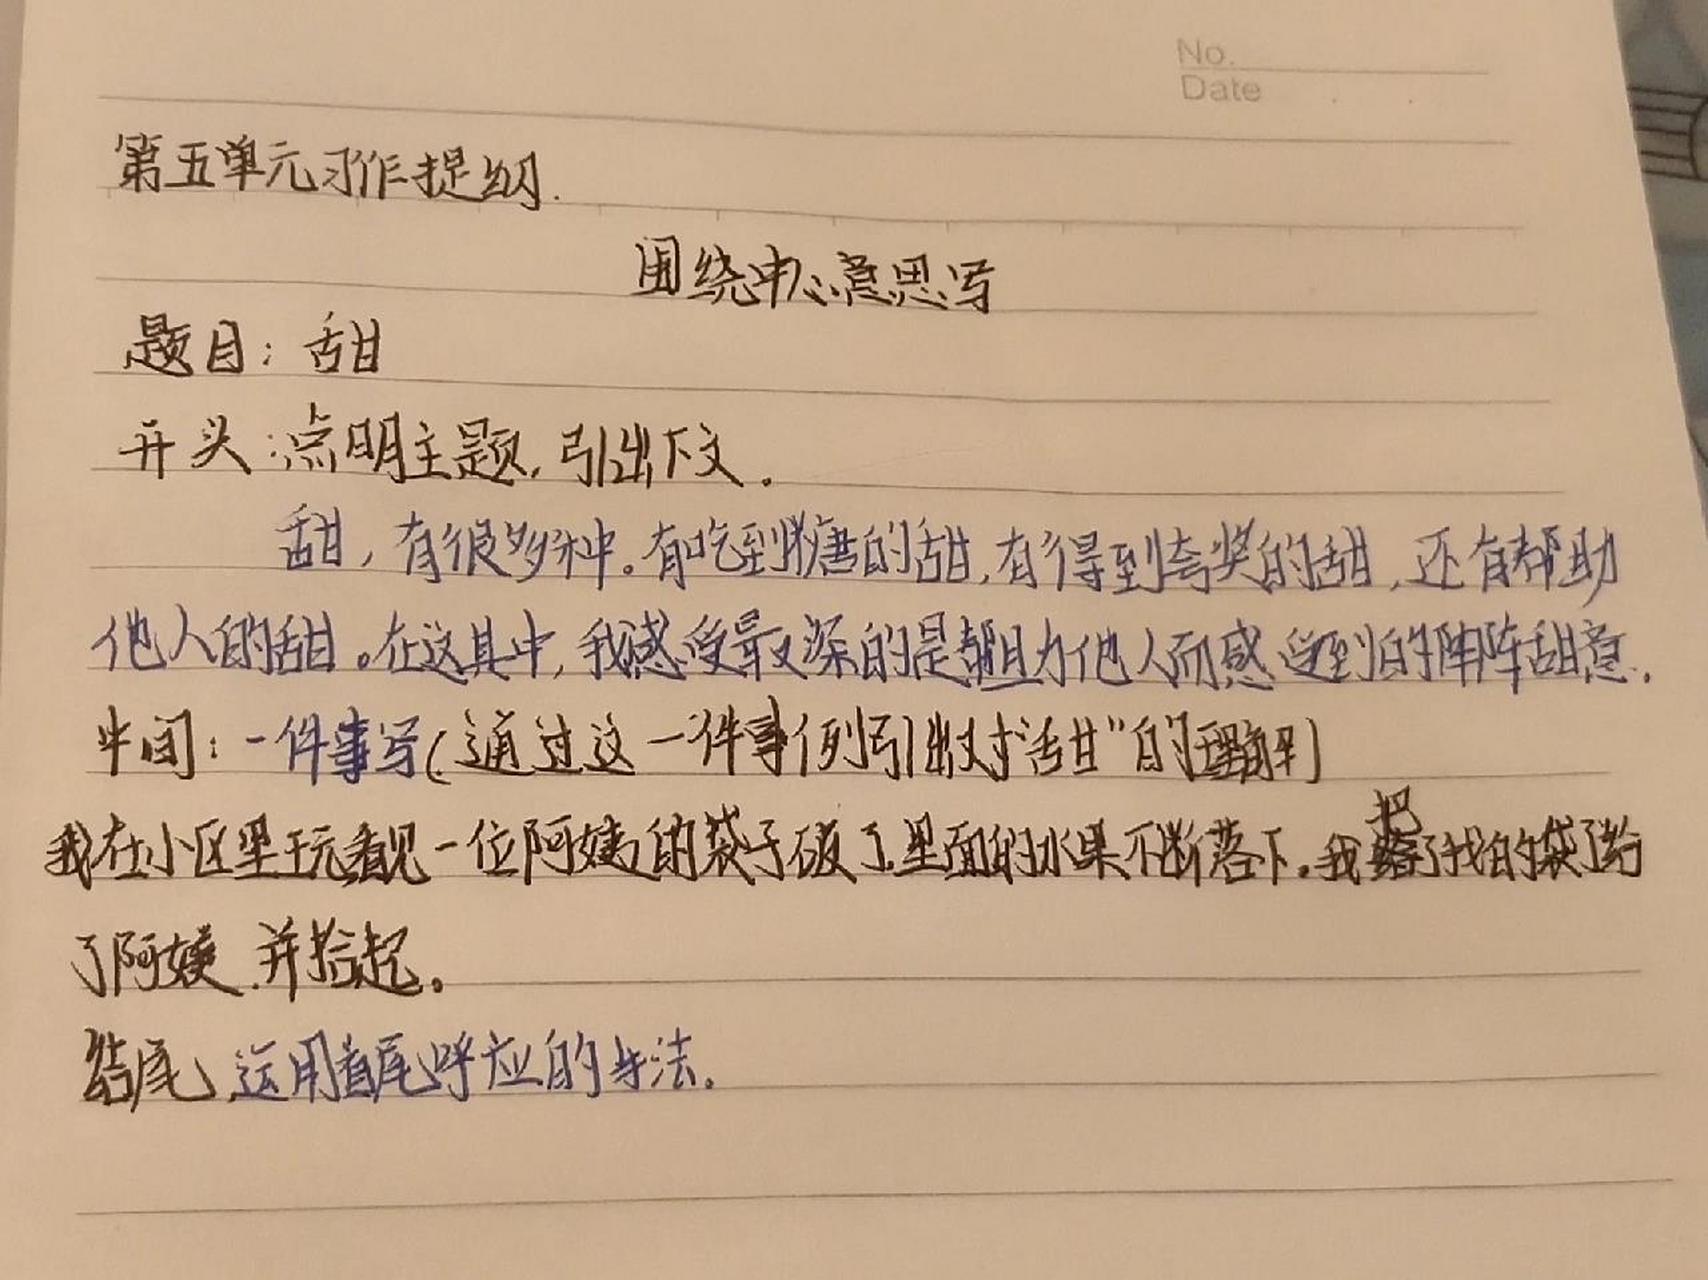 No.
Date
第五单元习作提纲.
围绕中心意思写
题目：甜
开头：点明主题，引出下文。
甜，有很多种。有吃到糖的甜，有得到夸奖的甜，还有帮助
他人的甜。在这其中，我感受最深的是帮助他人而感受到的阵阵甜意.
中间：一件事写（通过这一件事例引出对“甜”的理解）
我在小区里玩看见一位阿姨的袋子破了里面的水果不断落下。我把了我的袋子给
了阿姨.并拾起。
结尾 运用首尾呼应的手法。